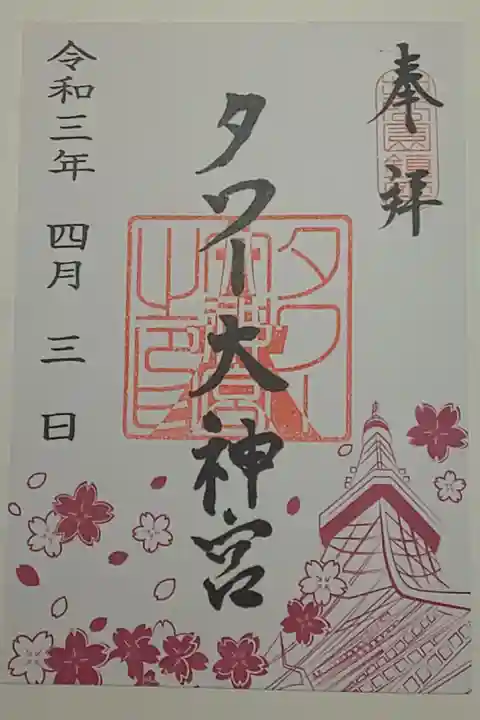 奉拝
タワー大神宮
令和三年 四月 三 日